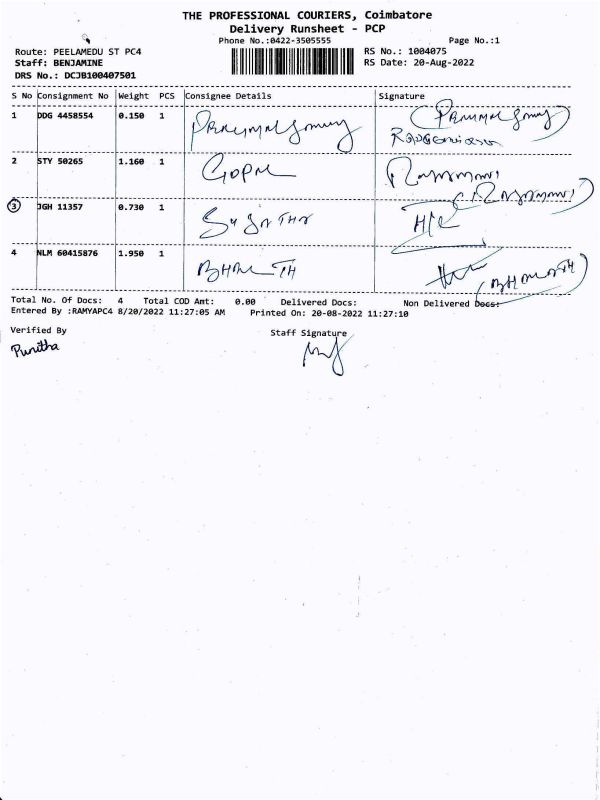 THE PROFESSIONAL COURIERS, Coimbatore
Delivery Runsheet - PCP
Phone No.:0422-3505555
Page No.:1
Route: PEELAMEDU ST PC4
RS No.: 1004075
Staff: BENJAMINE
RS Date: 20-Aug-2022
DRS No.: DCJB100407501
S No Consignment No Weight PCS Consignee Details Signature
1 DDG 4458554 0.150 1
2 STY 50265 1.160 1 GOPAL
3 JGH 11357 0.730 1 SUJATHA
4 NLM 60415876 1.950 1 BHARATH (BHARATH)
Total No. Of Docs: 4 Total COD Amt: 0.00 Delivered Docs: Non Delivered Docs:
Entered By :RAMYAPC4 8/20/2022 11:27:05 AM Printed On: 20-08-2022 11:27:10
Verified By Staff Signature
Punitha